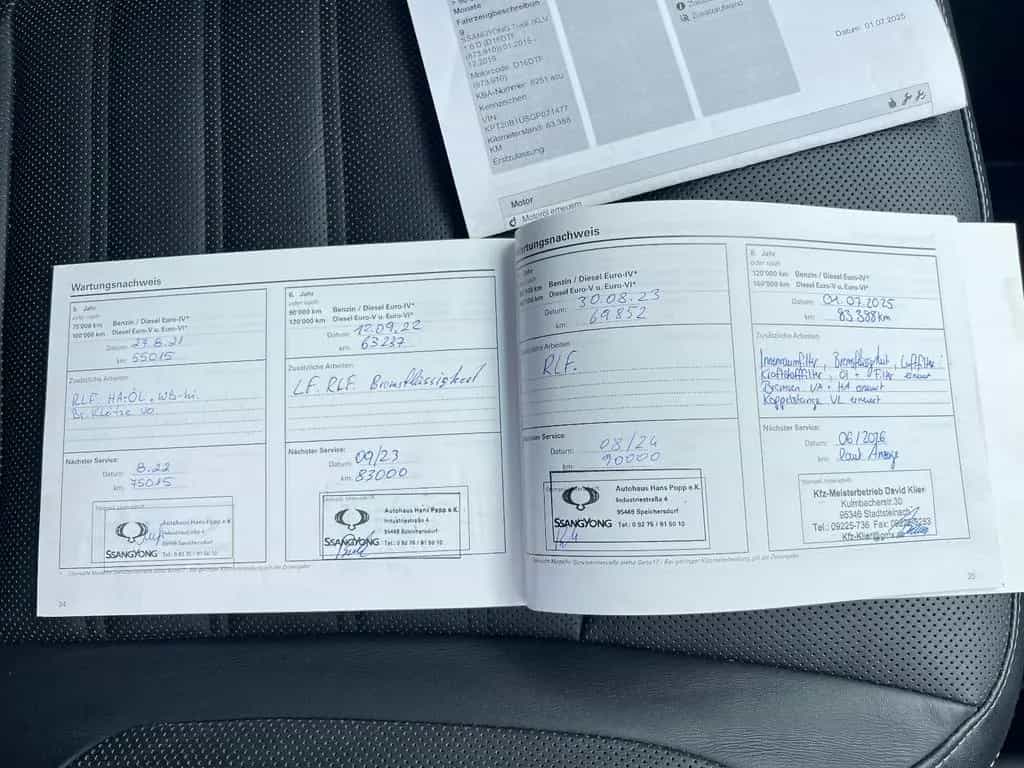 Monate
Fahrzeugbeschreibun
g
SSANGYONG Tivoli (XLV
1.6 D (D16DTF
(673.910)) 01.2015 -
12.2019
Motorcode: D16DTF
(673.910)
KBA-Nummer: 8251
Kennzeichen:
VIN:
Kilometerstand: 83.388
KM
Erstzulassung
Zusatzaufwand
Datum: 01.07.2025
Motor
Motoröl erneuern
Wartungsnachweis
5. Jahr
oder nach
75'000 km Benzin / Diesel Euro-IV*
100'000 km Diesel Euro-V u. Euro-VI*
Datum: 23.8.21
km: 55015
Zusätzliche Arbeiten:
RLF. HA-ÖL.
Br. Klötze VO.
Nächster Service:
Datum: 8.22
km: 75015
SSANGYONG
Autohaus Hans Popp e.K.
Industriestraße 4
95469 Speichersdorf
Tel.: 0 92 75 / 91 50 10
34
6. Jahr
oder nach
90'000 km Benzin / Diesel Euro-IV*
120'000 km Diesel Euro-V u. Euro-VI*
Datum: 12.09.22
km: 63237
Zusätzliche Arbeiten:
LF. RLF. Bremsflüssigkeit
Nächster Service:
Datum: 09/23
km: 83000
SSANGYONG
Autohaus Hans Popp e.K.
Industriestraße 4
95469 Speichersdorf
Tel.: 0 92 75 / 91 50 10
Wartungsnachweis
Jahr
oder nach
Benzin / Diesel Euro-IV*
Diesel Euro-V u. Euro-VI*
Datum: 30.08.23
km: 69852
Zusätzliche Arbeiten:
RLF.
Nächster Service:
Datum: 08/24
km: 90000
SSANGYONG
Autohaus Hans Popp e.K.
Industriestraße 4
95469 Speichersdorf
Tel.: 0 92 75 / 91 50 10
8. Jahr
oder nach
120'000 km Benzin / Diesel Euro-IV*
160'000 km Diesel Euro-V u. Euro-VI*
Datum: 01.07.2025
km: 83388km
Zusätzliche Arbeiten:
Innenraumfilter, Bremsflüssigkeit, Luftfilter
Kraftstofffilter, Öl + Filter erneut
Bremsen VA + HA erneut
Koppelstange VL erneut
Nächster Service:
Datum: 06/2026
km: laut Anzeige
Kfz-Meisterbetrieb David Klier
Kulmbacherstr.30
95346 Stadtsteinach
Tel.: 09225-736 Fax:
Kfz-Klier@gmx.de
35